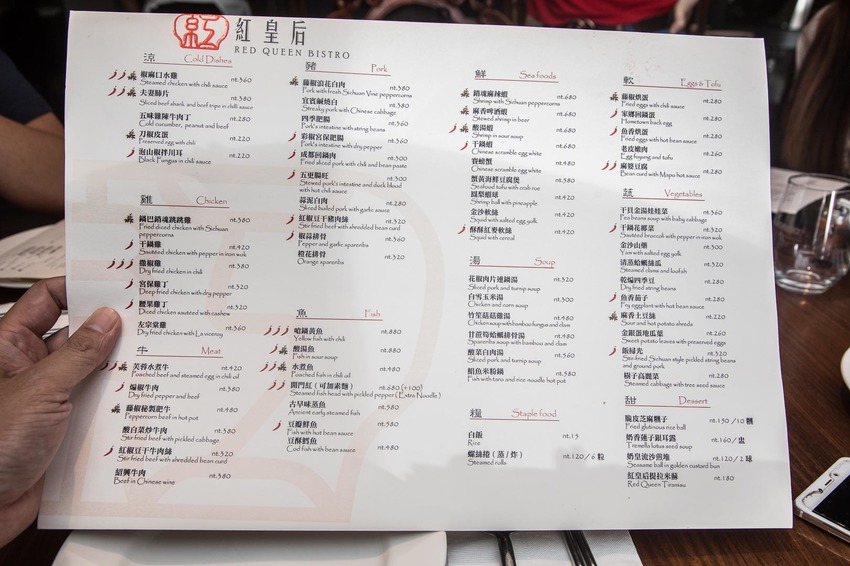 紅
紅皇后
RED QUEEN BISTRO
涼 Cold Dishes
椒麻口水雞 nt.360
Steamed chicken with chili sauce
夫妻肺片 nt.380
Sliced beef shank and beef tripe in chili sauce
五味雞陳牛肉丁 nt.280
Cold cucumber, peanut and beef
刀椒皮蛋 nt.220
Preserved egg with chili
泡山椒拌川耳 nt.220
Black Fungus in chili sauce
雞 Chicken
鍋巴銷魂跳跳雞 nt.380
Fried diced chicken with Sichuan
peppercorns
干鍋雞 nt.420
Sautéed chicken with pepper in iron wok
撒椒雞 nt.380
Dry fried chicken in chili
宮保雞丁 nt.320
Deep fried chicken with dry pepper
腰果雞丁 nt.320
Diced chicken sautéed with cashew
左宗棠雞 nt.360
Dry fried chicken with
牛 Meat
芙蓉水煮牛 nt.420
Poached beef and steamed egg in chili oil
煸椒牛肉 nt.380
Dry fried pepper and beef
藤椒秘製肥牛 nt.400
Peppercorn beef in hot pot
酸白菜炒牛肉 nt.380
Stir fried beef with pickled cabbage
紅椒豆干牛肉絲 nt.320
Stir fried beef with shredded bean curd
紹興牛肉 nt.380
Beef in Chinese wine
豬 Pork
藤椒浪花白肉 nt.380
Pork with fresh Sichuan Vine peppercorns
宜賓鹹燒白 nt.380
Streaky pork with Chinese cabbage
四季肥腸 nt.360
Pork's intestine with string beans
彩椒宮保肥腸 nt.360
Pork's intestine with dry pepper
成都回鍋肉 nt.300
Fried sliced pork with chili and bean paste
五更腸旺 nt.300
Stewed pork's intestine and duck blood
with hot chili sauce
蒜泥白肉 nt.280
Sliced boiled pork with garlic sauce
紅椒豆干豬肉絲 nt.320
Stir fried beef with shredded bean curd
椒蒜排骨 nt.360
Pepper and garlic spareribs
橙花排骨 nt.320
Orange spareribs
魚 Fish
嗆鍋黃魚 nt.880
Yellow fish with chili
酸湯魚 nt.480
Fish in sour soup
水煮魚 nt.480
Poached fish in chili oil
開門紅 (可加素麵) nt.680 (+100)
Steamed fish head with pickled pepper (Extra Noodle)
古早味蒸魚 nt.580
Ancient early steamed fish
豆瓣鮮魚 nt.580
Fish with hot bean sauce
豆酥鱈魚 nt.480
Cod fish with bean sauce
鮮 Sea foods
銷魂麻辣蝦 nt.680
Shrimp with Sichuan peppercorns
麻香啤酒蝦 nt.680
Stewed shrimp in beer
酸湯蝦 nt.680
Shrimp in sour soup
干鍋蝦 nt.680
Chinese scramble egg white
賽螃蟹 nt.480
Chinese scramble egg white
蟹黃海鮮豆腐煲 nt.380
Seafood tofu with crab roe
鳳梨蝦球 nt.380
Shrimp ball with pineapple
金沙軟絲 nt.420
Squid with salted egg yolk
酥酥紅麥軟絲 nt.420
Squid with cereal
湯 Soup
花椒肉片連鍋湯 nt.320
Sliced pork and turnip soup
白雪玉米湯 nt.300
Chicken and corn soup
竹笙菇菇雞湯 nt.480
Chicken soup with bamboo fungus and clams
甘蔗筍蛤蠣排骨湯 nt.480
Spareribs soup with bamboo and clams
酸菜白肉湯 nt.360
Sliced pork and turnip soup
鯧魚米粉鍋 nt.580
Fish with taro and rice noodle hot pot
糧 Staple food
白飯 nt.15
Rice
螺絲捲 (蒸/炸) nt.120/6 粒
Steamed rolls
軟 Eggs & Tofu
藤椒烘蛋 nt.280
Fried eggs with chili sauce
家鄉回鍋蛋 nt.280
Hometown back egg
魚香烘蛋 nt.260
Fried eggs with hot bean sauce
老皮嫩肉 nt.260
Egg fuyung and tofu
麻婆豆腐 nt.240
Bean curd with Mapo hot sauce
蔬 Vegetables
干貝金湯娃娃菜 nt.360
Pea beans soup with baby cabbage
干鍋花椰菜 nt.320
Sautéed broccoli with pepper in iron wok
金沙山藥 nt.300
Yam with salted egg yolk
清蒸蛤蠣絲瓜 nt.320
Steamed clams and loofah
乾煸四季豆 nt.280
Dry fried string beans
魚香茄子 nt.280
Fry eggplant with hot bean sauce
麻香土豆絲 nt.220
Sour and hot potato shreds
金銀蛋地瓜葉 nt.260
Sweet potato leaves with preserved eggs
飯掃光 nt.320
Stir-fried Sichuan style pickled string beans
and ground pork
樹子高麗菜 nt.280
Steamed cabbage with tree seed sauce
甜 Dessert
脆皮芝麻麵子 nt.150/10 顆
Fried glutinous rice ball
奶香蓮子銀耳露 nt.160/盅
Tremella lotus seed soup
奶皇流沙煎堆 nt.120/2 球
Seasame ball in golden custard bun
紅皇后提拉米蘇 nt.180
Red Queen Tiramisu